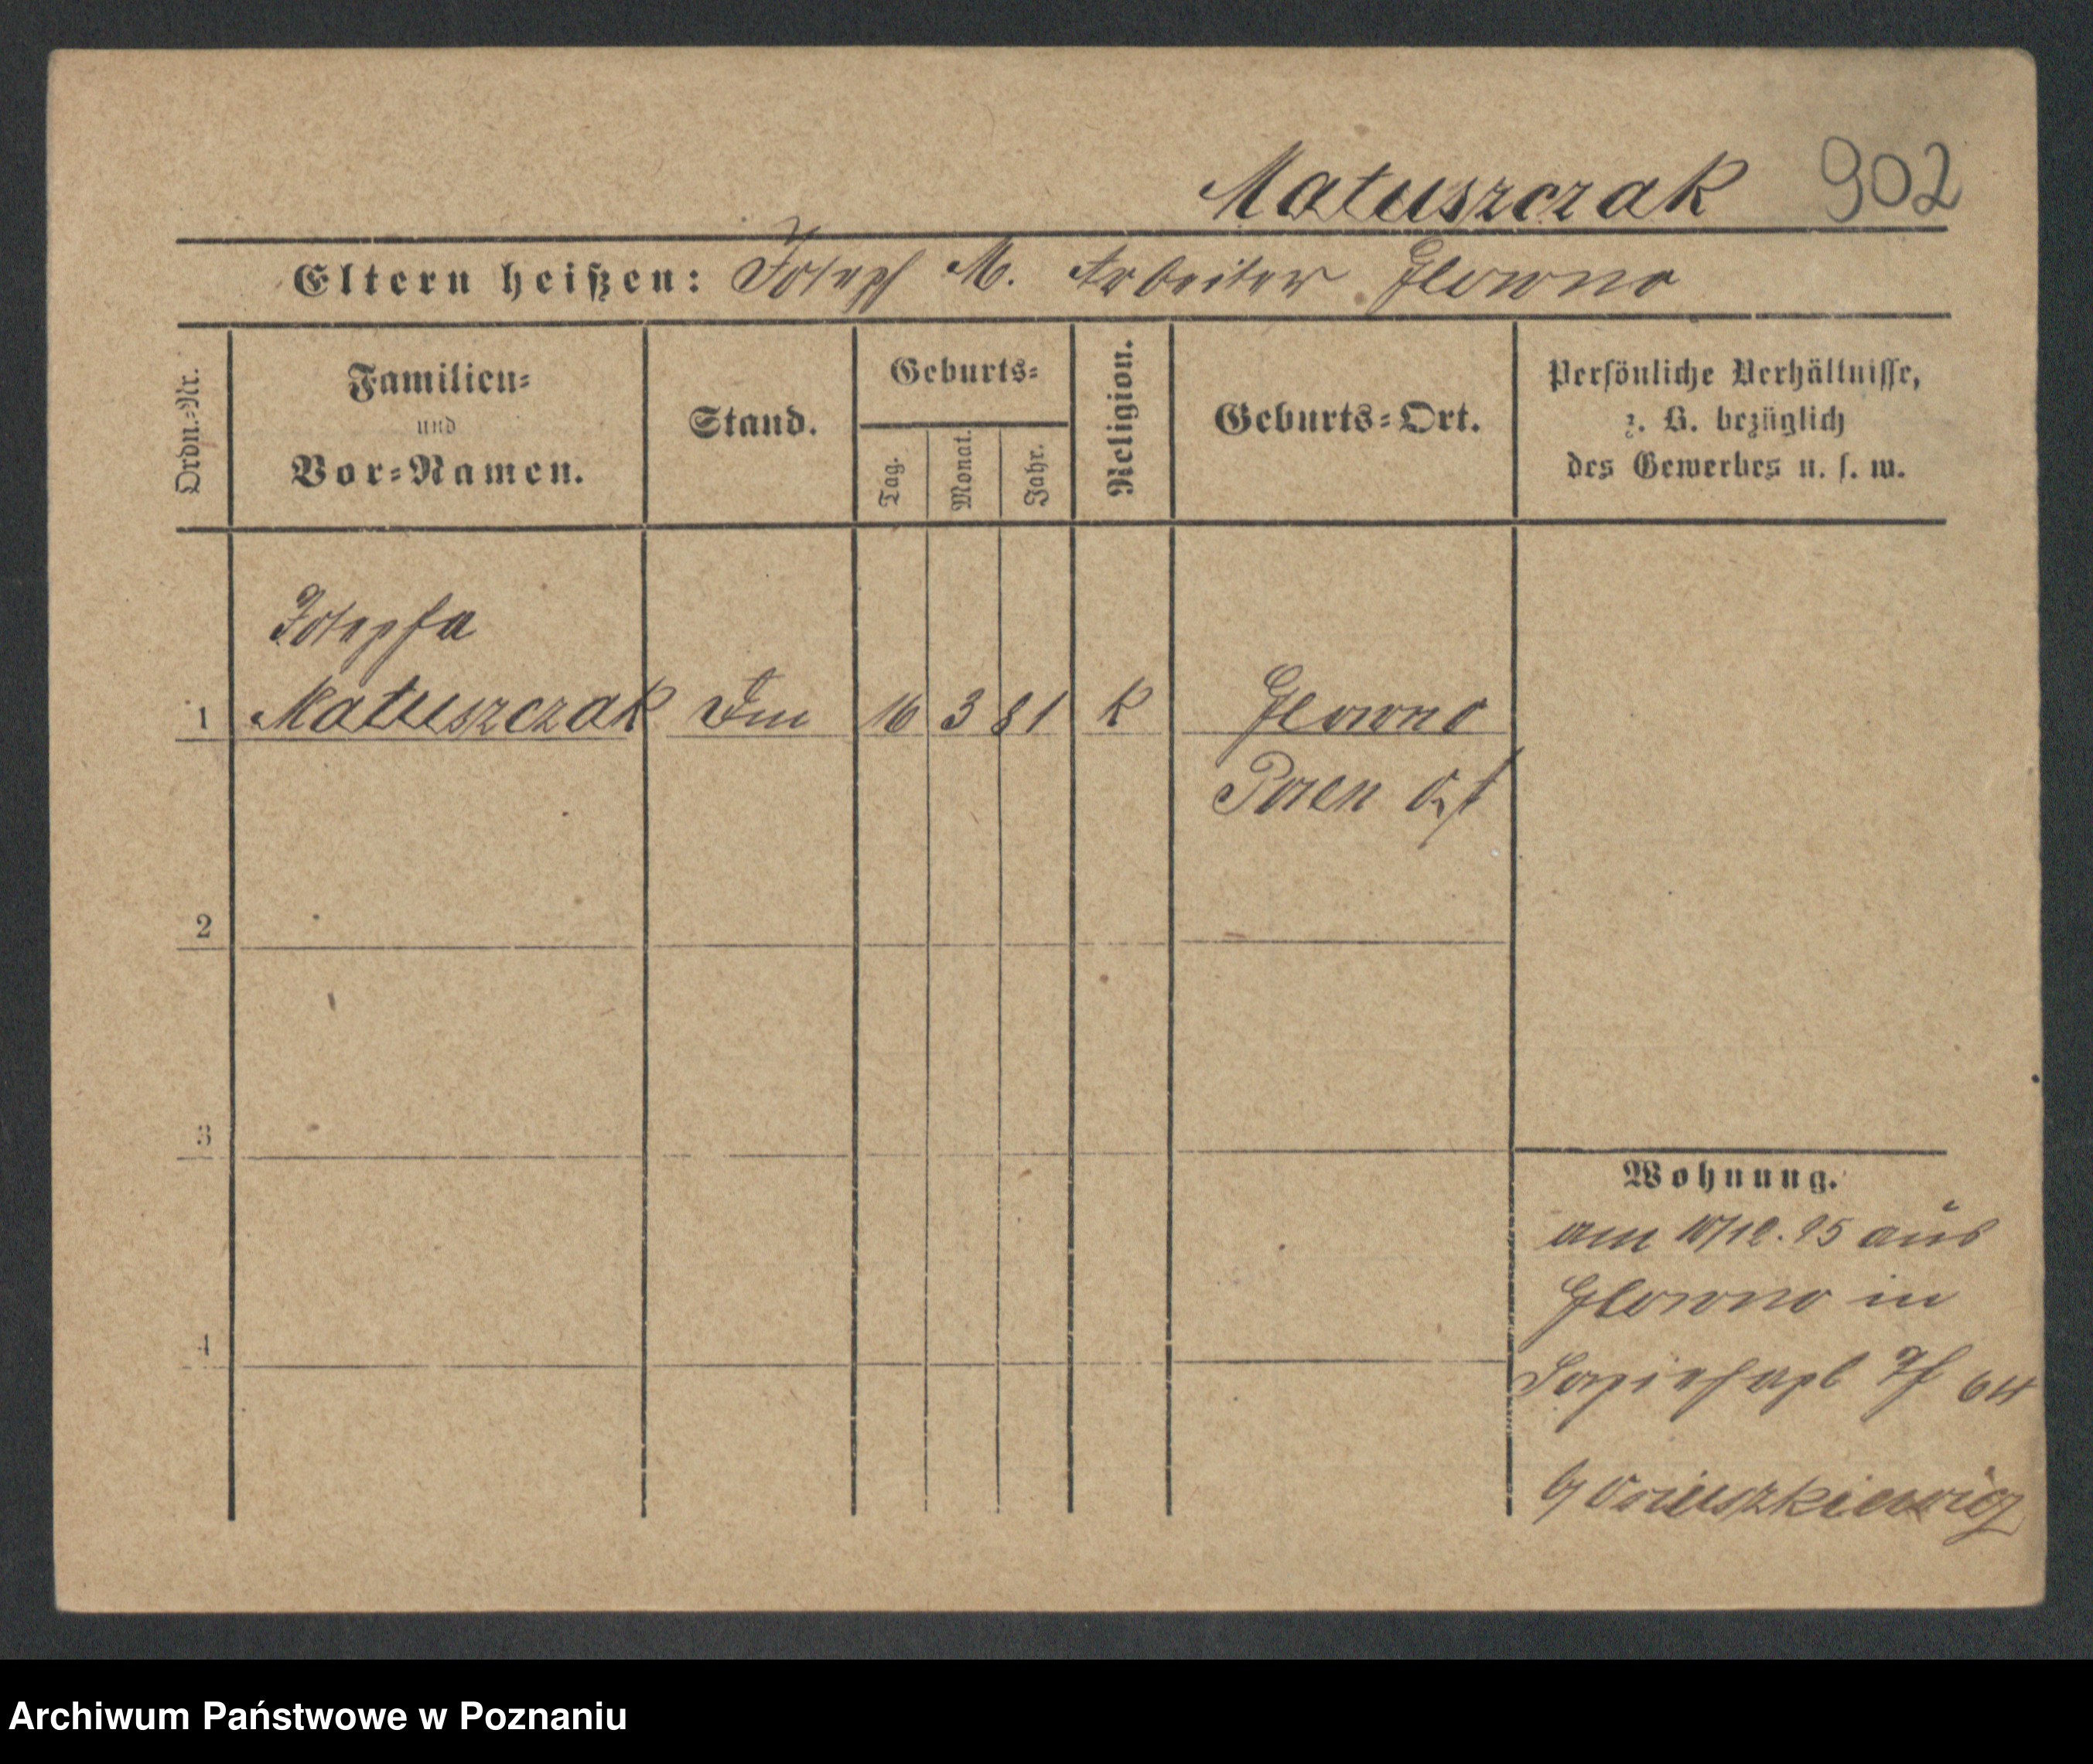 Matuszczak 902
Eltern heißen: Joseph M. Arbeiter Glowno
Ordn.=Nr.
Familien=
und
Vor=Namen.
Stand.
Geburts=
Tag.
Monat.
Jahr.
Religion.
Geburts=Ort.
Persönliche Verhältnisse,
z. B. bezüglich
des Gewerbes u. s. w.
Josepha
1 Matuszczak 16 3 81 K Glowno
Posen Ost
2
3
4
Wohnung.
am 95 aus
Glowno in
64
Archiwum Państwowe w Poznaniu